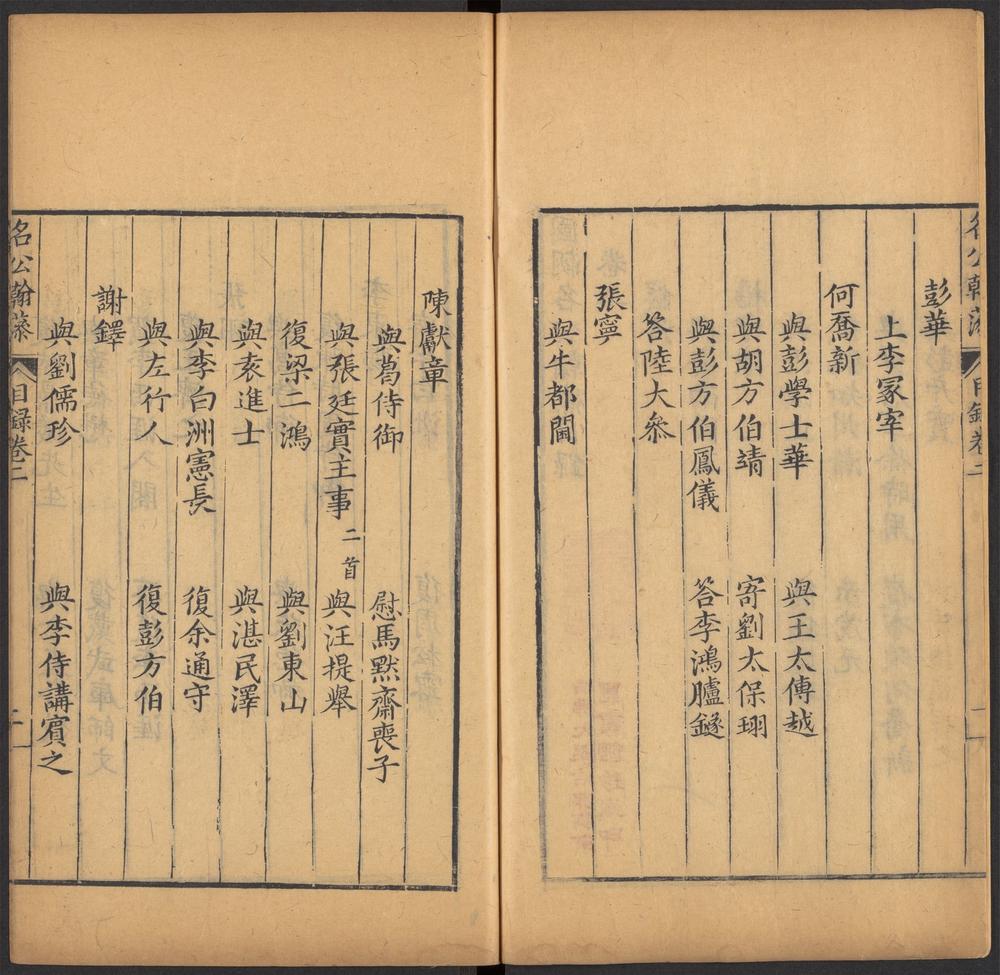 彭華
上李冡宰
何喬新
與彭學士華 與王太傅越
與胡方伯靖 寄劉太保珝
與彭方伯鳳儀 答李鴻臚鐩
答陸大叅
張寧
與牛都閫
陳獻章
與葛侍御 慰馬默齋喪子
與張廷實主事 二首 與汪提舉
復梁二鴻 與劉東山
與袁進士 與湛民澤
與李白洲憲長 復余通守
與左行人 復彭方伯
謝鐸
與劉儒珍 與李侍講賓之
名公翰藻 目録卷二